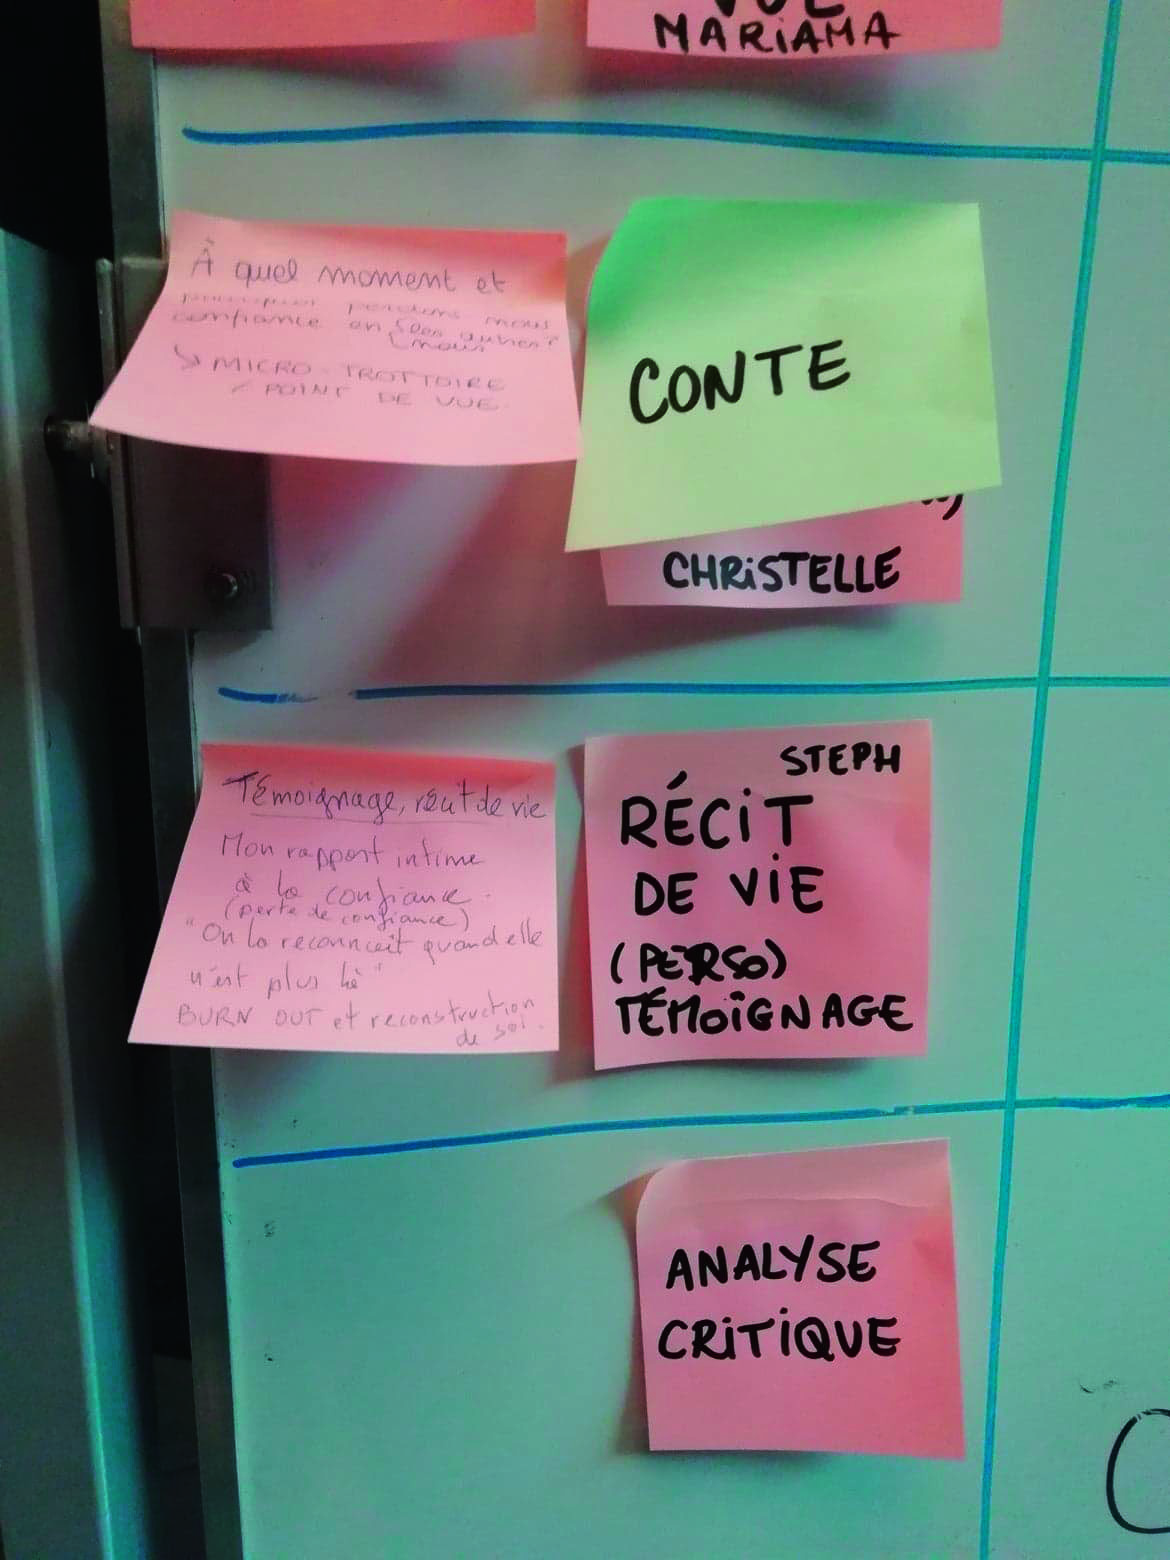 MARiAMA
À quel moment et
pourquoi perdons nous
confiance en les autres?
nous
↘ MICRO-TROTTOIRE
/ POINT DE VUE.
CONTE
CHRiSTELLE
Témoignage, récit de vie
Mon rapport intime
à la confiance.
(perte de confiance)
"On la reconnait quand elle
n'est plus là"
BURN OUT et reconstruction
de soi.
STEPH
RÉCiT
DE ViE
(PERSO)
TÉMOiGNAGE
ANALYSE
CRiTiQUE